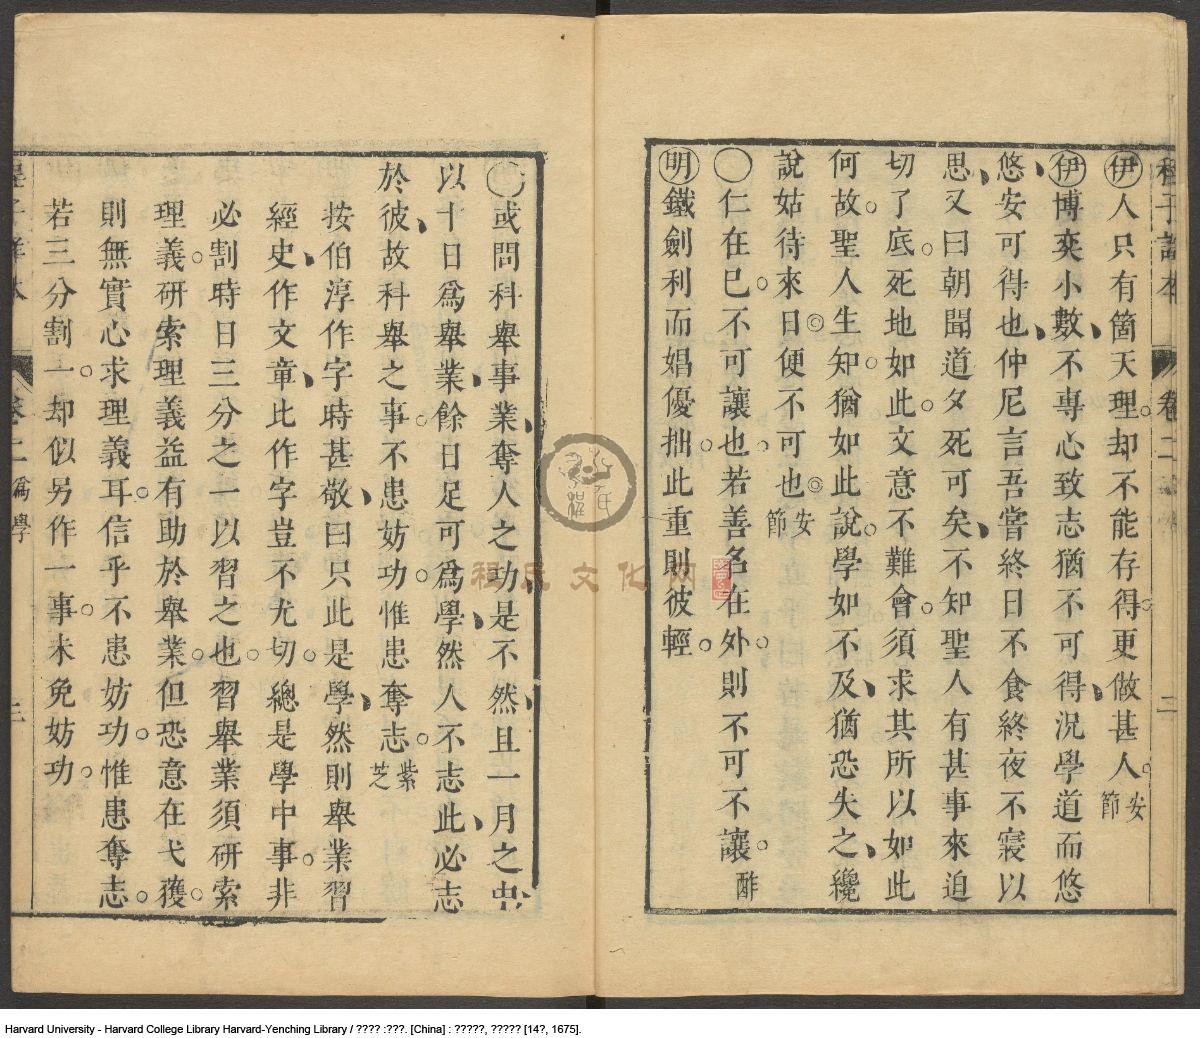 程子詳本 卷二 二
伊人只有箇天理却不能存得更做甚人安節
伊博奕小數不專心致志猶不可得況學道而悠
悠安可得也仲尼言吾嘗終日不食終夜不寢以
思又曰朝聞道夕死可矣不知聖人有甚事來迫
切了底死地如此文意不難會須求其所以如此
何故聖人生知猶如此說學如不及猶恐失之纔
說姑待來日便不可也安節
仁在己不可讓也若善名在外則不可不讓酢
明鐵劍利而娼優拙此重則彼輕
或問科舉事業奪人之功是不然且一月之中
以十日爲舉業餘日足可爲學然人不志此必志
於彼故科舉之事不患妨功惟患奪志紫芝
按伯淳作字時甚敬曰只此是學然則舉業習
經史作文章比作字豈不尤切總是學中事非
必割時日三分之一以習之也習舉業須研索
理義研索理義益有助於舉業但恐意在弋獲
則無實心求理義耳信乎不患妨功惟患奪志
若三分割一却似另作一事未免妨功
程子詳本 卷二 爲學 三
程氏文化网
Harvard University - Harvard College Library Harvard-Yenching Library / ???? :???. [China] : ?????, ????? [14?, 1675].